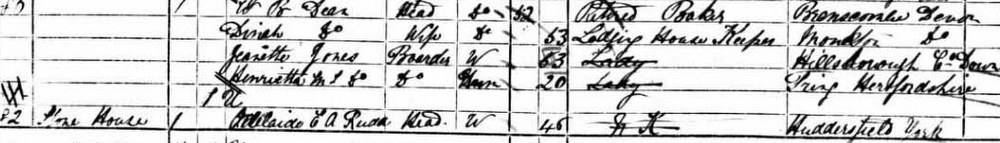 W B Dean Head Do 52 Retired Baker Branscombe Devon
Dinah Do Wife Do 53 Lodging House Keeper Monkton Do
Jeanette Jones Boarder W 63 Lady Hillsborough Co Down
Henrietta M S Do Do Unm 20 Lady Tring Hertfordshire
1 U
82 Stone House 1 Adelaide E A Rudd Head W 46 N K Huddersfield York